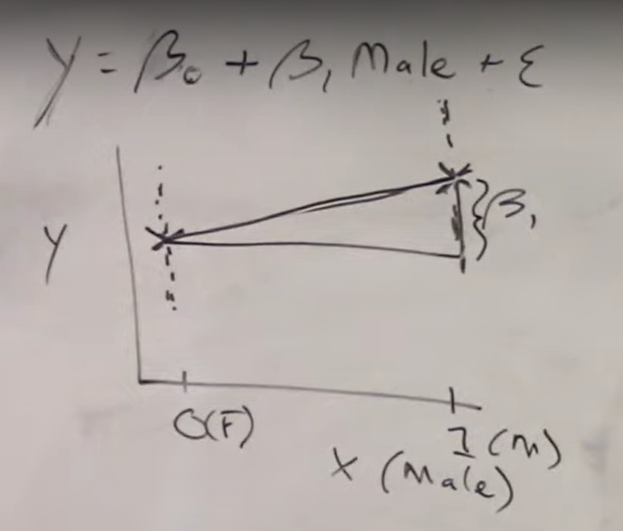 Y = β₀ + β₁ Male + ε
β₁
Y
0(F)
1(M)
X (Male)